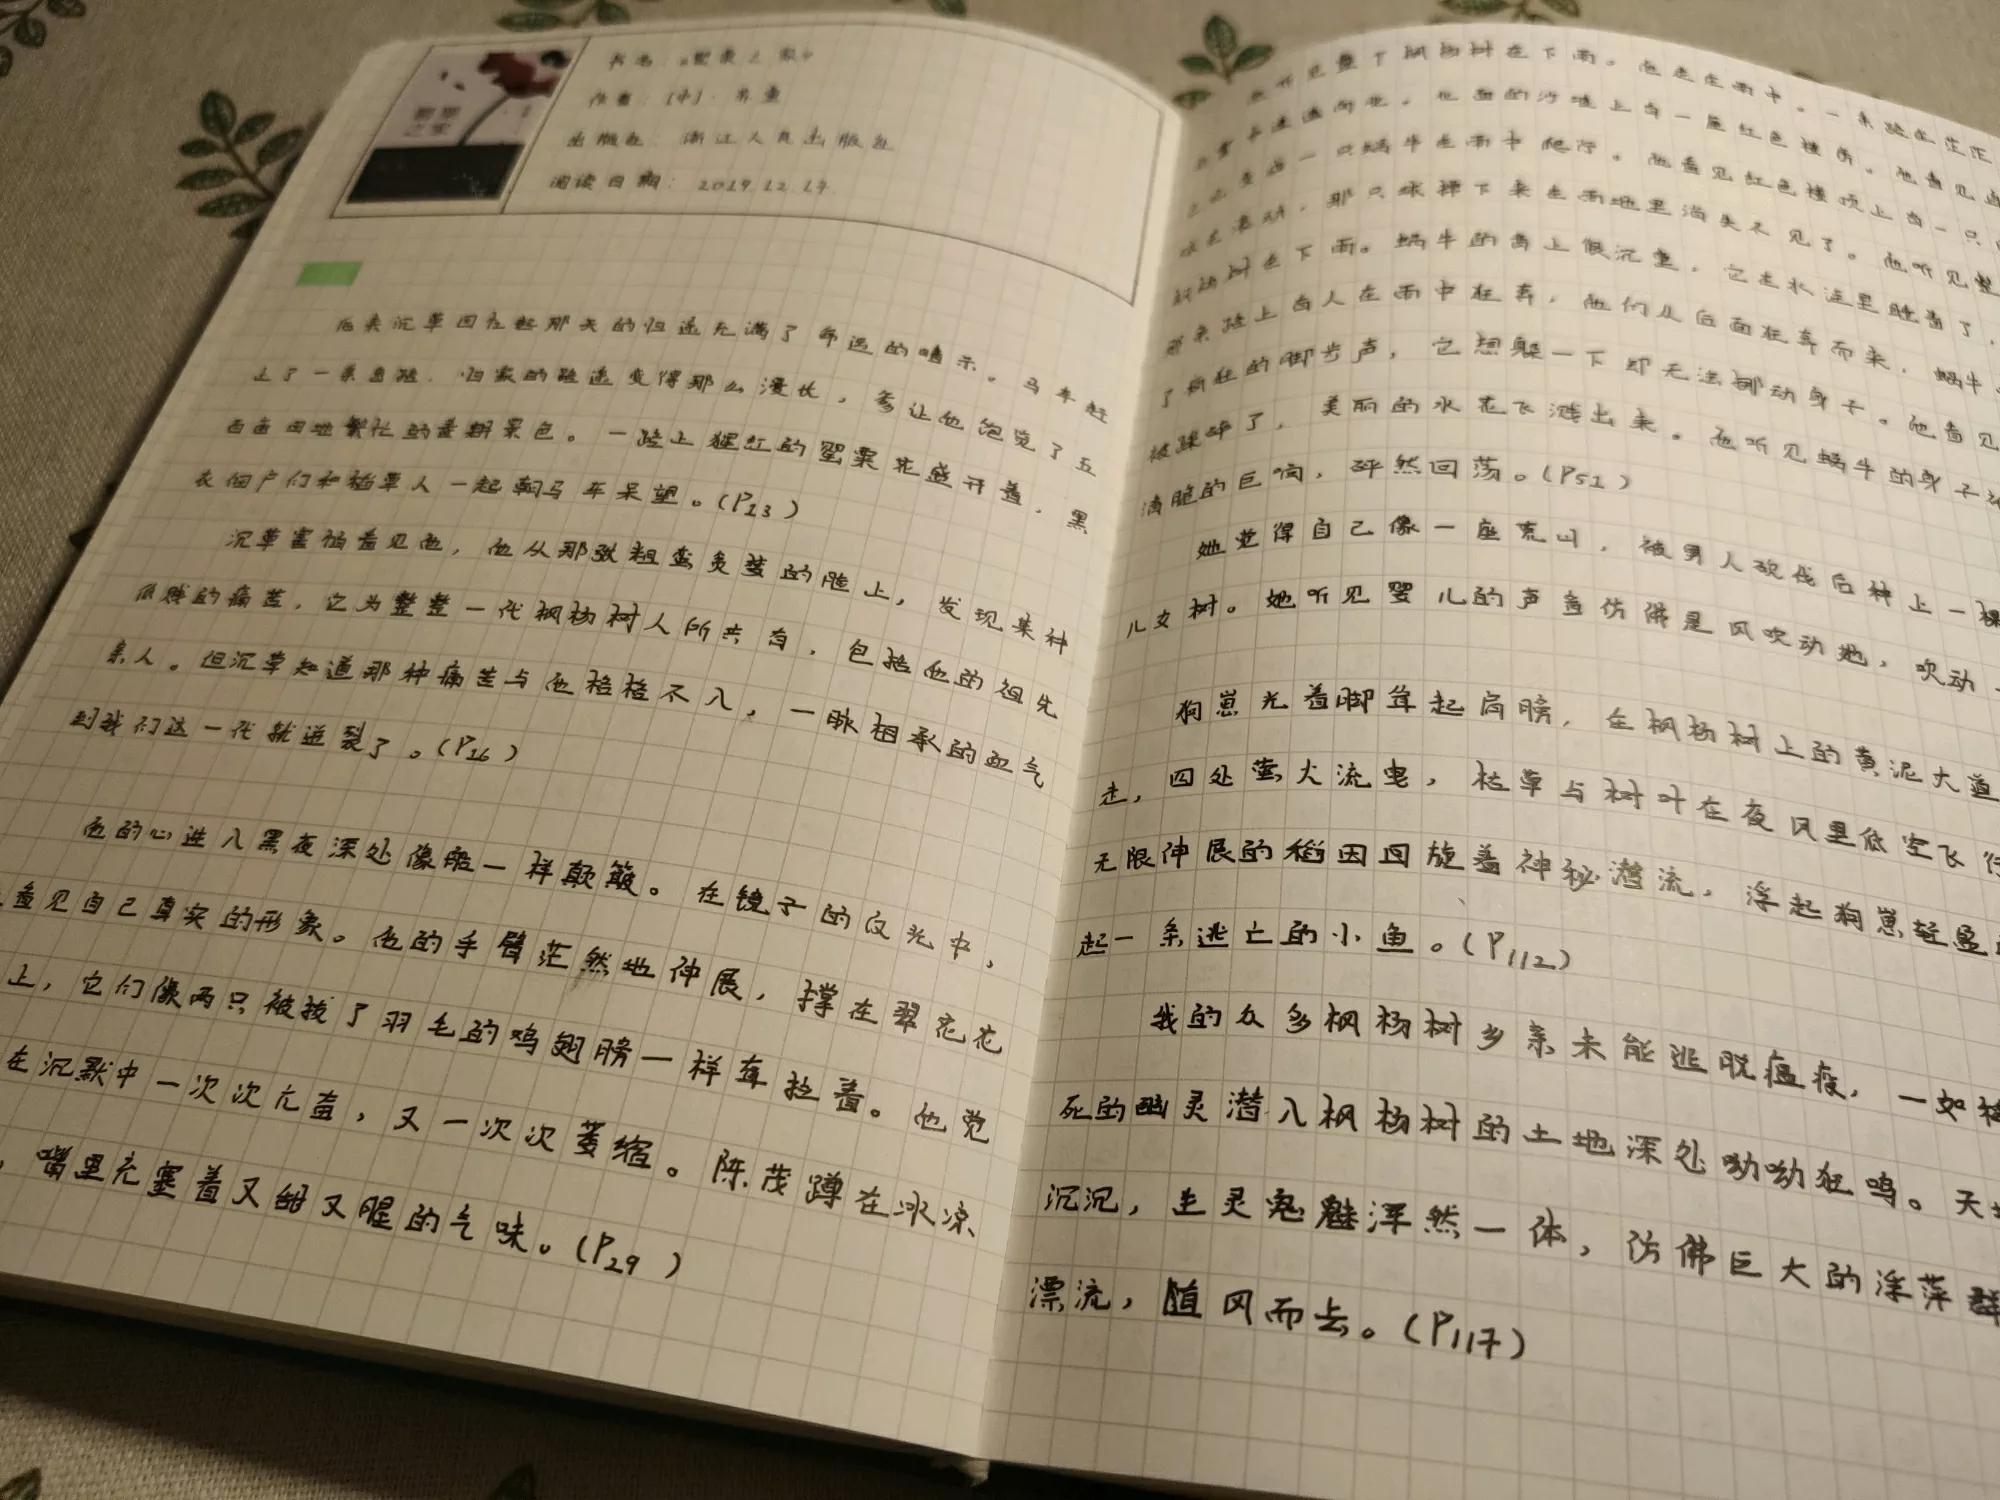 书名:《罂粟之家》
作者:[中]·苏童
出版社:浙江人民出版社
阅读日期:2019.12.17.
罂粟
之家
后来沉草回忆起那天的归途充满了命运的暗示。马车赶
上了一条岔路,归家的路途变得那么漫长,爹让他饱览了五
百亩田地繁忙的春耕景色。一路上猩红的罂粟花盛开着,黑
衣佃户们和稻草人一起朝马车呆望。(P13)
沉草害怕看见他,他从那张粗蛮贪婪的脸上,发现某种
低贱的痛苦,它为整整一代枫杨树人所共有,包括他的祖先
亲人。但沉草知道那种痛苦与他格格不入,一脉相承的血气
到我们这一代就迸裂了。(P16)
他的心进入黑夜深处像船一样颠簸。在镜子的反光中,
看见自己真实的形象。他的手臂茫然地伸展,撑在翠花花
上,它们像两只被拔了羽毛的鸡翅膀一样耷拉着。他觉
在沉默中一次次亢奋,又一次次萎缩。陈茂蹲在冰凉
,嘴里充塞着又甜又腥的气味。(P29)
他听见整个枫杨树在下雨。他走在雨中。一条路在茫茫
上有一座红色楼房。他看见
一只蜗牛在雨中爬行。他看见红色楼顶上有一只
滚动,那只球掉下来在雨地里消失不见了。他听见整
枫杨树在下雨。蜗牛的背上很沉重,它在水洼里睡着了,
那条路上有人在雨中狂奔,他们从后面狂奔而来,蜗牛
了疯狂的脚步声,它想躲一下却无法挪动身子。他看见
被踩碎了,美丽的水花飞溅出来。他听见蜗牛的身子
清脆的巨响,砰然回荡。(P51)
她觉得自己像一座荒山,被男人砍伐后种上一棵
儿女树。她听见婴儿的声音仿佛是风吹动她,吹动
狗崽光着脚耸起肩膀,在枫杨树上的黄泥大道
走,四处萤火流曳,枯草与树叶在夜风里低空飞行
无限伸展的稻田回旋着神秘潜流,浮起狗崽轻盈
起一条逃亡的小鱼。(P112)
我的众多枫杨树乡亲未能逃脱瘟疫,一如
死的幽灵潜入枫杨树的土地深处呦呦狂鸣。天
沉沉,生灵鬼魅浑然一体,仿佛巨大的浮萍群
漂流,随风而去。(P117)